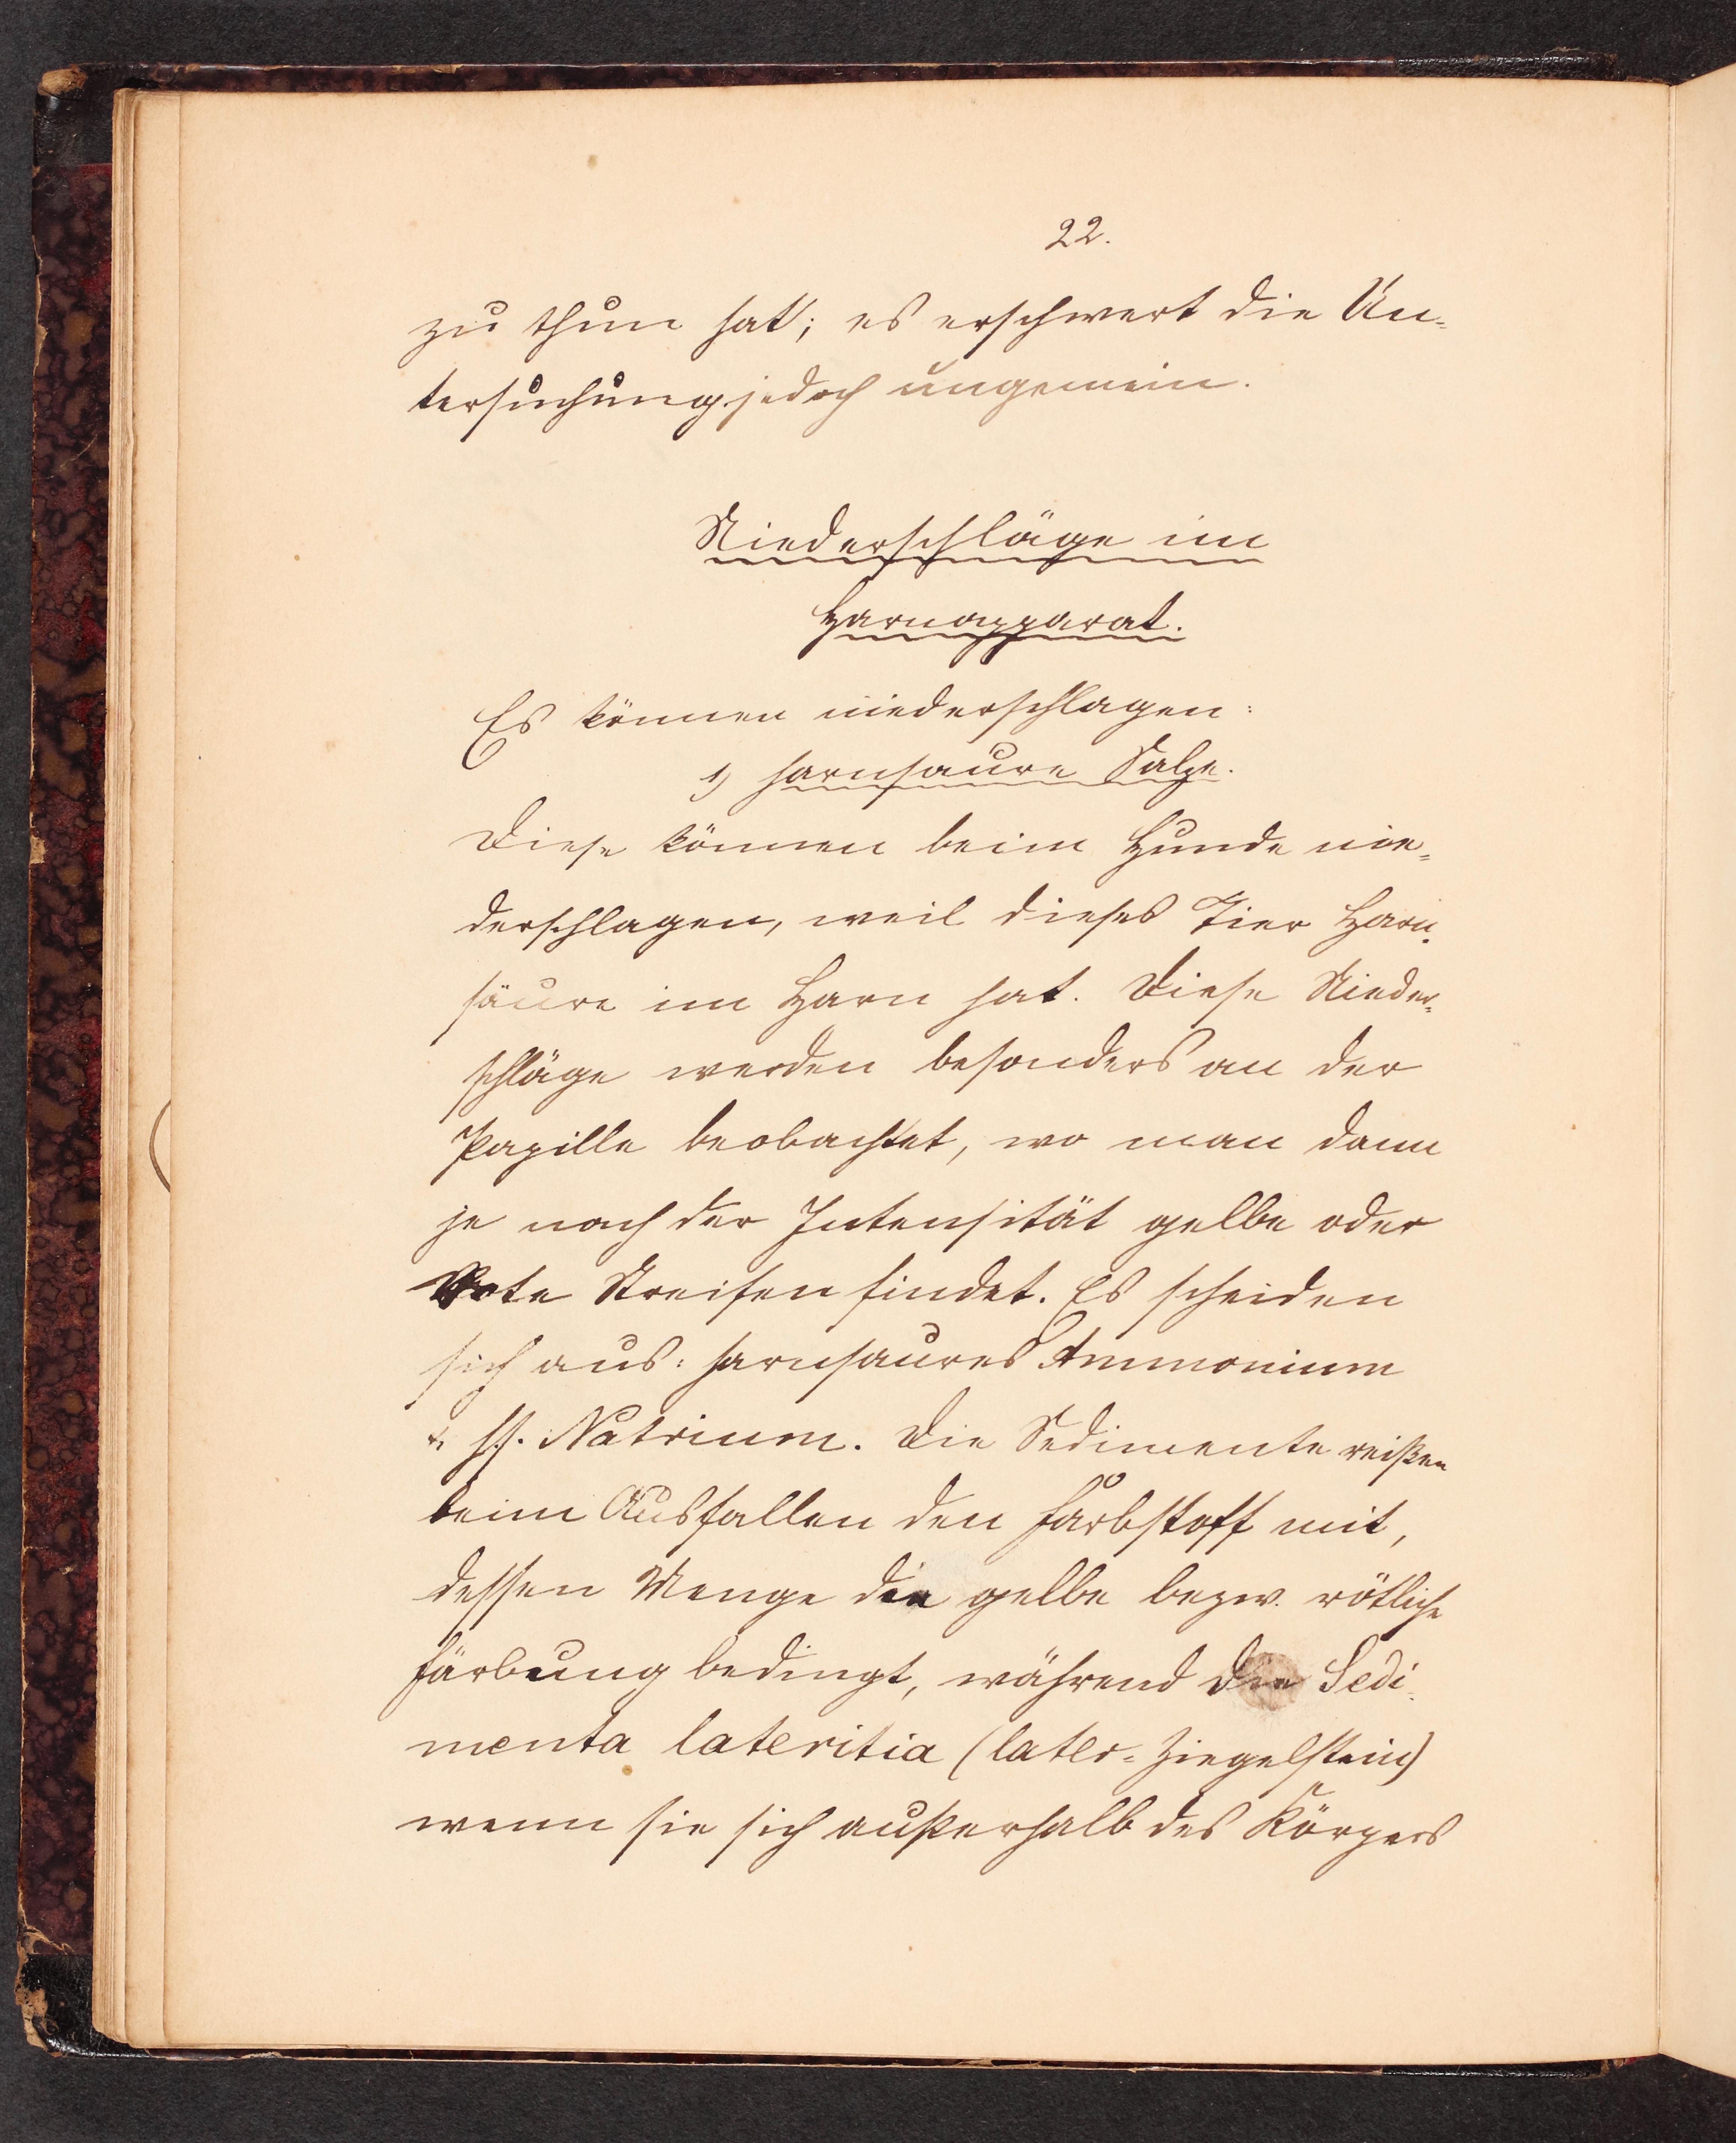 22.
zu thun hat; es erschwert die Un-
tersuchung jedoch ungemein.
Niederschläge im
Harnapparat.
Es können niederschlagen:
1) harnsaure Salze.
Diese können beim Hunde nie-
derschlagen, weil dieses Tier Harn-
säure im Harn hat. Diese Nieder-
schläge werden besonders an der
Papille beobachtet, wo man dann
je nach der Intensität gelbe oder
rote Streifen findet. Es scheiden
sich aus: harnsaures Ammonium
u. hs. Natrium. Die Sedimente reißen
beim Ausfallen den Farbstoff mit,
dessen Menge die gelbe bezw. rötliche
Färbung bedingt, während die Sedi-
menta lateritia (later = Ziegelstein)
wenn sie sich außerhalb des Körpers